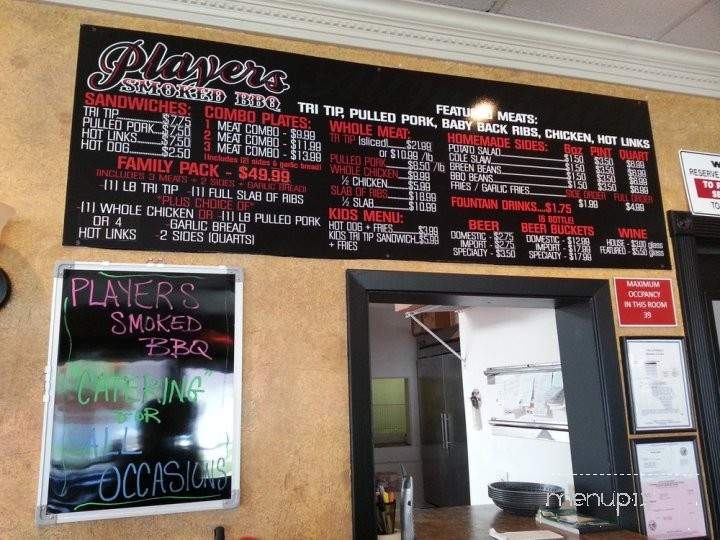 Players
SMOKED BBQ
FEATURED MEATS:
TRI TIP, PULLED PORK, BABY BACK RIBS, CHICKEN, HOT LINKS
SANDWICHES:
TRI TIP $7.75
PULLED PORK $7.75
HOT LINKS $7.50
HOT DOG $2.50
COMBO PLATES:
1 MEAT COMBO - $9.99
2 MEAT COMBO - $11.99
3 MEAT COMBO - $13.99
(Includes (2) sides & garlic bread)
FAMILY PACK - $49.99
(INCLUDES 3 MEATS + 2 SIDES + GARLIC BREAD)
-(1) LB TRI TIP -(1) FULL SLAB OF RIBS
*PLUS CHOICE OF*
-(1) WHOLE CHICKEN OR -(1) LB PULLED PORK
OR 4 -GARLIC BREAD
HOT LINKS -2 SIDES (QUARTS)
WHOLE MEAT:
TRI TIP (sliced) $21.99
or $10.99 /lb
PULLED PORK /lb
WHOLE CHICKEN
½ CHICKEN $5.99
SLAB OF RIBS $18.99
½ SLAB $10.99
KIDS MENU:
HOT DOG + FRIES $3.99
KIDS TRI TIP SANDWICH $5.99
+ FRIES
HOMEMADE SIDES: 6oz PINT QUART
POTATO SALAD $1.50 $3.50
COLE SLAW $1.50 $3.50
GREEN BEANS $1.50 $3.50
BBQ BEANS $1.50 $3.50
FRIES / GARLIC FRIES
SIDE ORDER FULL ORDER
$1.99 $4.99
FOUNTAIN DRINKS $1.75
(6 BOTTLE)
BEER BEER BUCKETS WINE
DOMESTIC - $2.75 DOMESTIC - $12.99 HOUSE - $3.00 glass
IMPORT - $2.75 IMPORT - $17.99 FEATURED - $5.50 glass
SPECIALTY - $3.50 SPECIALTY - $17.99
RESERVE
MAXIMUM
OCCPANCY
IN THIS ROOM
39
PLAYERS
SMOKED
BBQ
"CATERING"
FOR
ALL
OCCASIONS
menupix